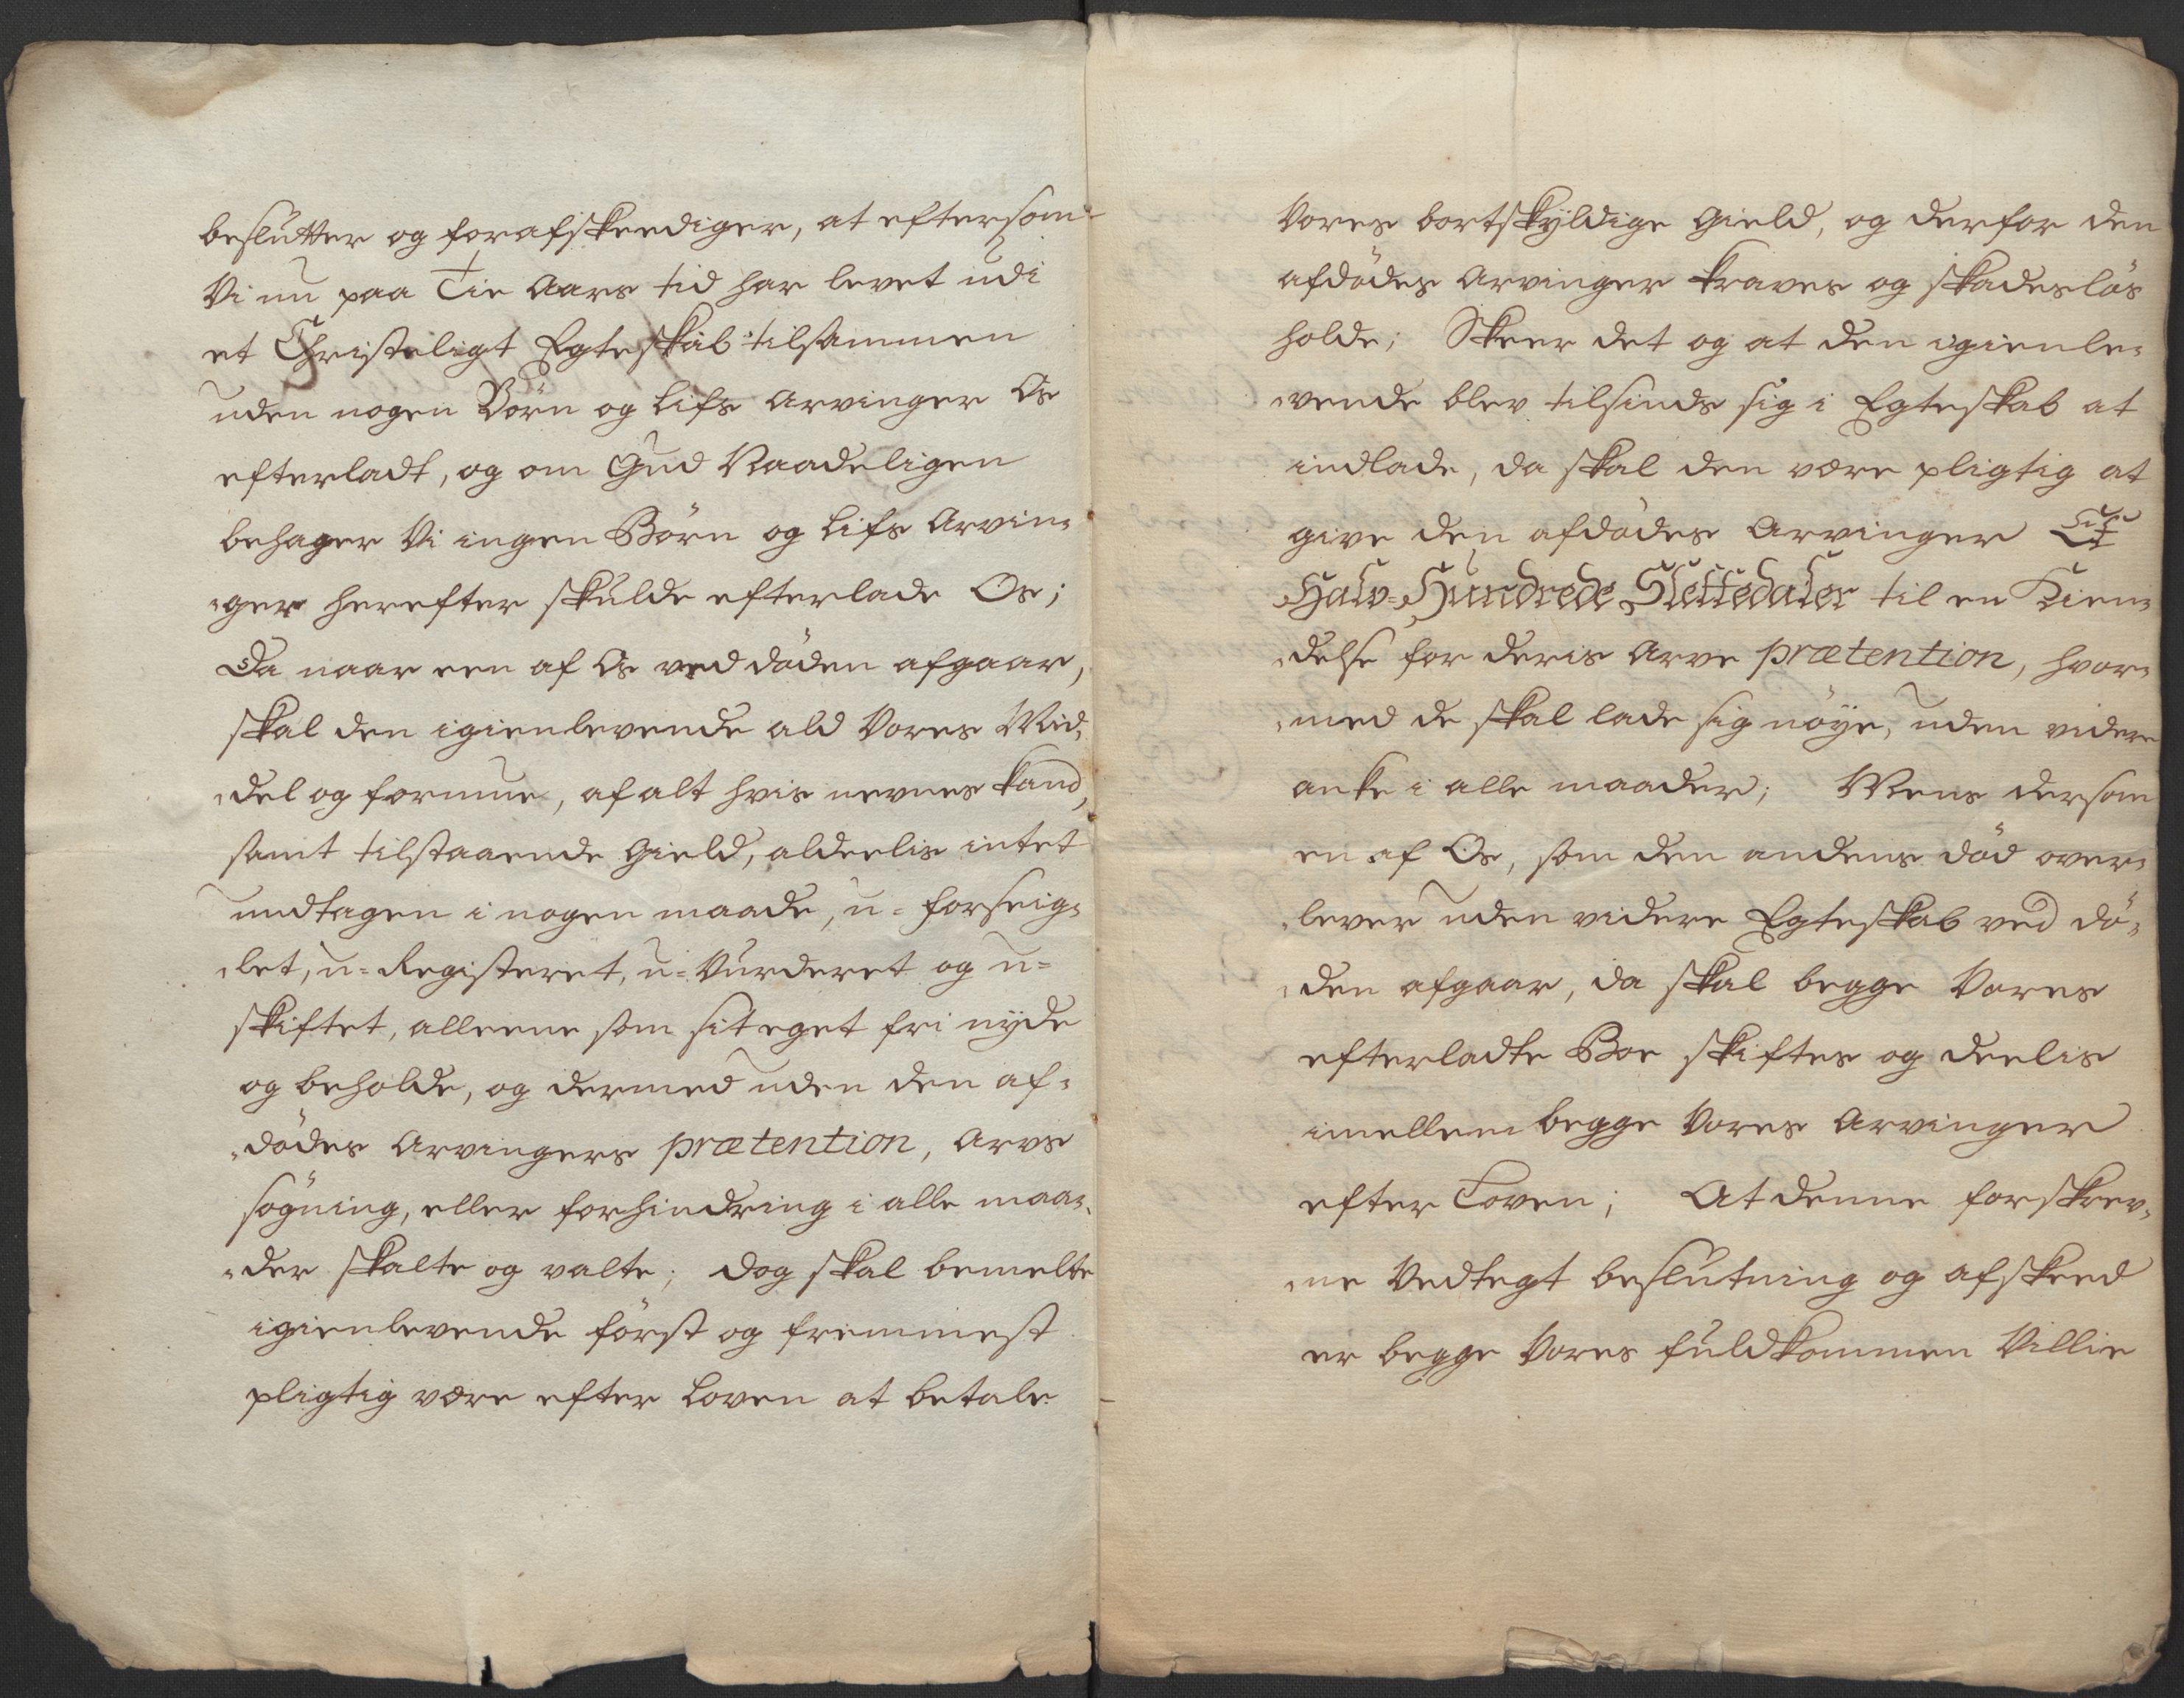 beslutter og forafskeediger, at eftersom-
Vi nu paa Tie Aars tid har levet udi
et Christeligt Egteskab tilsammen
uden nogen Börn og Lifs Arvinger Os
efterladt, og om Gud Naadeligen
behager Vi ingen Börn og Lifs Arvin„
„ger herefter skulde efterlade Os;
Da naar een af Os ved döden afgaar,
skal den igienlevende ald Vores Mid„
„del og formue, af alt hvis nevnes kand,
samt tilstaaende Gield, alderlis intet
undtagen i nogen maade, u=forseig„
„let, u=Registeret, u=Vurderet og u=
skiftet, alleene som sit eget fri nyde
og beholde, og dermed uden den af„
„dödes Arvingers prætention, Arvs
sögning, eller forhindring i alle maa„
„der skalte og valte; Dog skal bemelte
igienlevende först og fremmest
pligtig være efter Loven at betale
Vores bortskyldige Gield, og derfor den
afdödes Arvinger kraves og skadeslös
holde; Skeer det og at den igienle„
„vende blev tilsinds sig i Egteskab at
indlade, da skal den være pligtig at
give den afdödes Arvinger Et
Halv=Hundrede Slettedaler til en Kien„
„delse for deris Arve prætention, hvor„
„med de skal lade sig nöye, uden videre
anke i alle maader; Mens dersom
en af Os, som den andens död over„
„lever uden videre Egteskab ved dö„
„den afgaar, da skal begge Vores
efterladte Boe skiftes og deelis
imellem begge Vores Arvinger
efter Loven; At denne forskrev„
„ne Vedtegt beslutning og afskeed
er begge Vores fuldkommen Villie